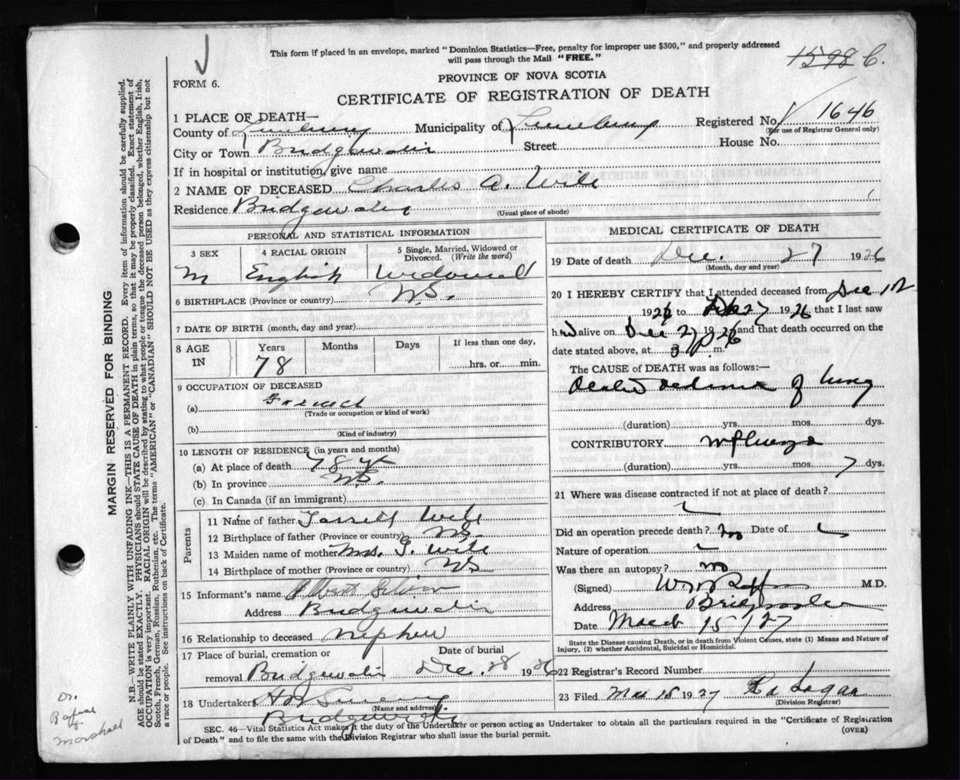 This form if placed in an envelope, marked "Dominion Statistics—Free, penalty for improper use $300," and properly addressed
will pass through the Mail "FREE."
FORM 6.
PROVINCE OF NOVA SCOTIA
CERTIFICATE OF REGISTRATION OF DEATH
1 PLACE OF DEATH—
County of Lunenburg Municipality of Lunenburg Registered No. 1646
(For use of Registrar General only)
City or Town Bridgewater Street House No.
If in hospital or institution, give name
2 NAME OF DECEASED Charles A. Wile
Residence Bridgewater
(Usual place of abode)
PERSONAL AND STATISTICAL INFORMATION
3 SEX 4 RACIAL ORIGIN 5 Single, Married, Widowed or Divorced. (Write the word)
M English Widowed
6 BIRTHPLACE (Province or country) N.S.
7 DATE OF BIRTH (month, day and year)
8 AGE IN Years Months Days If less than one day,
78 hrs. or min.
9 OCCUPATION OF DECEASED
(a)
(Trade or occupation or kind of work)
(b)
(Kind of industry)
10 LENGTH OF RESIDENCE (in years and months)
(a) At place of death 78 yr
(b) In province N.S.
(c) In Canada (if an immigrant)
Parents
11 Name of father Wile
12 Birthplace of father (Province or country) N.S.
13 Maiden name of mother Mrs. G. Wile
14 Birthplace of mother NS
15 Informant's name Albert
Address Bridgewater
16 Relationship to deceased nephew
17 Place of burial, cremation or removal Date of burial
Bridgewater Dec. 28 1926
18 Undertaker
(Name and address)
Bridgewater
MEDICAL CERTIFICATE OF DEATH
19 Date of death Dec. 27 1926
(Month, day and year)
20 I HEREBY CERTIFY that I attended deceased from Dec 12
1926 to Dec 27 1926 that I last saw
h alive on Dec 27 1926 and that death occurred on
date stated above, at 3 p m.
The CAUSE of DEATH was as follows:—
oedema of lung
(duration) yrs. mos. dys.
CONTRIBUTORY Influenza
(duration) yrs. mos. 7 dys.
21 Where was disease contracted if not at place of death?
Did an operation precede death? no Date of
Nature of operation
Was there an autopsy? no
(Signed) M.D.
Address Bridgewater
Date March 15/27
State the Disease causing Death, or in death from Violent Causes, state (1) Means and Nature of
Injury, (2) whether Accidental, Suicidal or Homicidal.
22 Registrar's Record Number
23 Filed Mar 15 1927 Logan
(Division Registrar)
SEC. 46—Vital Statistics Act makes it the duty of the Undertaker or person acting as Undertaker to obtain all the particulars required in the "Certificate of Registration
of Death" and to file the same with the Division Registrar who shall issue the burial permit.
(OVER)
MARGIN RESERVED FOR BINDING
N.B.—WRITE PLAINLY WITH UNFADING INK—THIS IS A PERMANENT RECORD. Every item of information should be carefully supplied.
AGE should be stated EXACTLY. PHYSICIANS should STATE CAUSE OF DEATH in plain terms, so that it may be properly classified. Exact statement of
OCCUPATION is very important. RACIAL ORIGIN will be described by stating to what people or tongue the deceased person belonged, whether English, Irish,
Scotch, French, German, Russian, Ruthenian, etc. The terms "AMERICAN" or "CANADIAN" SHOULD NOT BE USED as they express citizenship but not
a race or people. See instructions on back of Certificate.
Dr.
Marshall